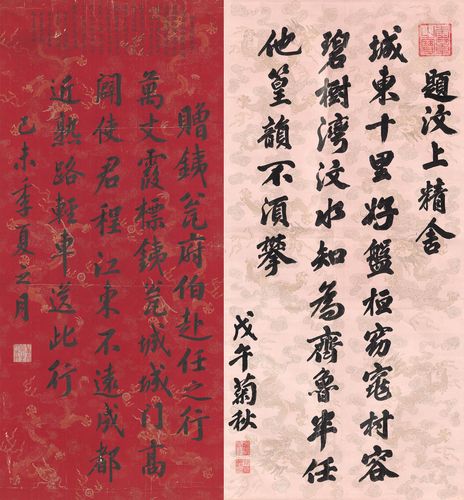 題汶上精舍
城東十里好盤桓窈窕村容
碧樹灣汶水知為齊魯半任
他篁韻不須攀
戊午菊秋
贈銕瓮府伯赴任之行
萬丈霞標銕瓮城城门高
闢使君程江東不遠成都
近熟路輕車送此行
己未季夏之月